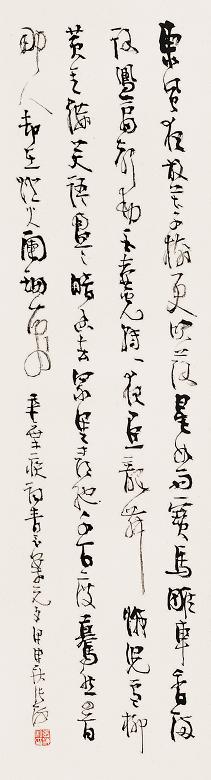 東風夜放花千樹更吹落星如雨寶馬雕車香滿
路鳳簫聲動玉壺光轉一夜魚龍舞 蛾兒雪柳
黃金縷笑語盈盈暗香去眾里尋他千百度驀然回首
那人却在燈火闌珊處 辛棄疾詞青玉案元夕甲申秋